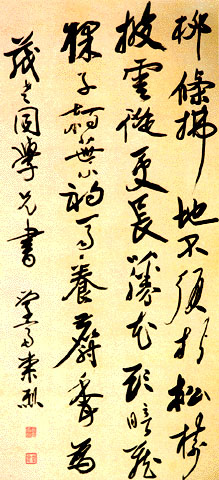 柳條拂地不須折松樹
披雲從更長藤花欲暗藏
猱子柏葉初齊養麝香為
同學兄書